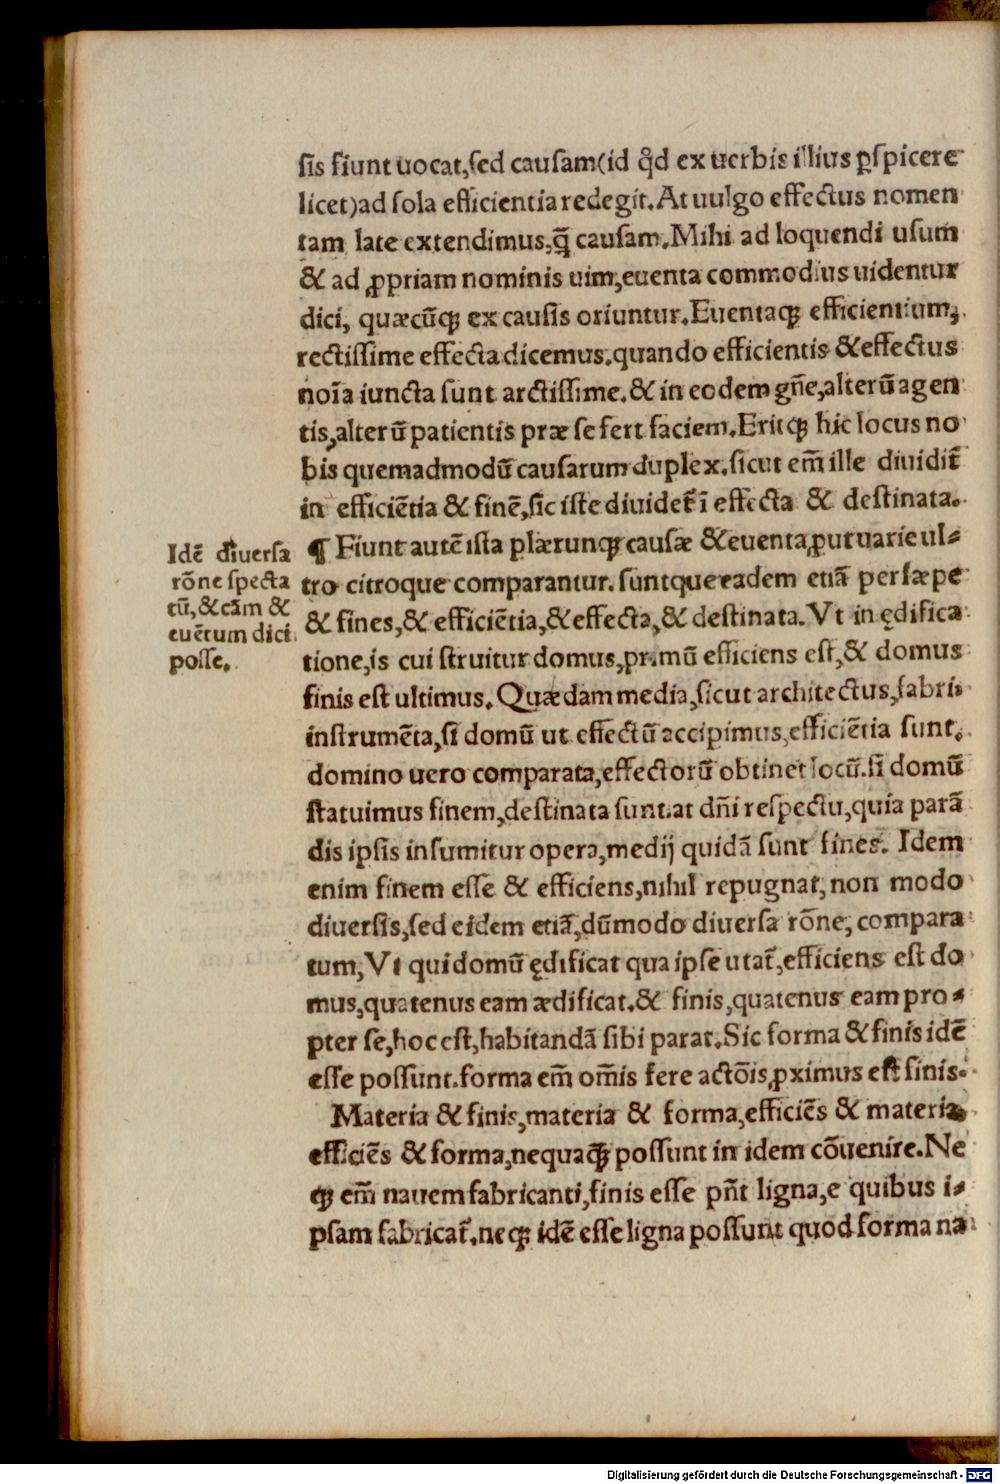 sis fiunt uocat,sed causam(id qd̄ ex uerbis illius ꝑspicere
licet)ad sola efficientia redegit.At uulgo effectus nomen
tam late extendimus,q̄ causam.Mihi ad loquendi usum
& ad ꝓpriam nominis uim,euenta commodius uidentur
dici, quæcūqꝫ ex causis oriuntur.Euentaqꝫ efficientium,
rectissime effecta dicemus.quando efficientis &effectus
noīa iuncta sunt arctissime.& in eodem gn̄e,alterū agen
tis,alterū patientis præ se fert faciem.Eritqꝫ hic locus no
bis quemadmodū causarum duplex.sicut em̄ ille diuidit̄
in efficiētia & finē,sic iste diuidet̄ ī effecta & destinata.
¶ Fiunt autē ista plærunqꝫ causæ &euenta,ꝓut uarie ul⸗
tro citroque comparantur.suntque eadem etiā persæpe
& fines,& efficiētia,&effecta,& destinata.Vt in ędifica
tione,is cui struitur domus,primū efficiens est,& domus
finis est ultimus.Quædam media,sicut architectus,fabri,
instrumēta,si domū ut effectū accipimus,efficiētia sunt.
domino uero comparata,effectorū obtinet locū.si domū
statuimus finem,destinata sunt.at dn̄i respectu,quia parā
dis ipsis insumitur opera,medij quidā sunt fines. Idem
enim finem esse & efficiens,nihil repugnat,non modo
diuersis,sed eidem etiā,dūmodo diuersa rōne, compara
tum,Vt qui domū ędificat qua ipse utat̄,efficiens est do
mus,quatenus eam ædificat.& finis,quatenus eam pro⸗
pter se,hoc est,habitandā sibi parat.Sic forma & finis idē
esse possunt.forma em̄ om̄is fere actōis,ꝓximus est finis.
Materia & finis,materia & forma,efficiēs & materia,
efficiēs & forma,nequaqꝫ possunt in idem cōuenire.Ne
qꝫ em̄ nauem fabricanti,finis esse pn̄t ligna,e quibus i⸗
psam fabricat̄.neqꝫ idē esse ligna possunt quod forma na
Idē diuersa
rōne specta
tū,&cām &
euētum dici
posse.
Digitalisierung gefördert durch die Deutsche Forschungsgemeinschaft - DFG